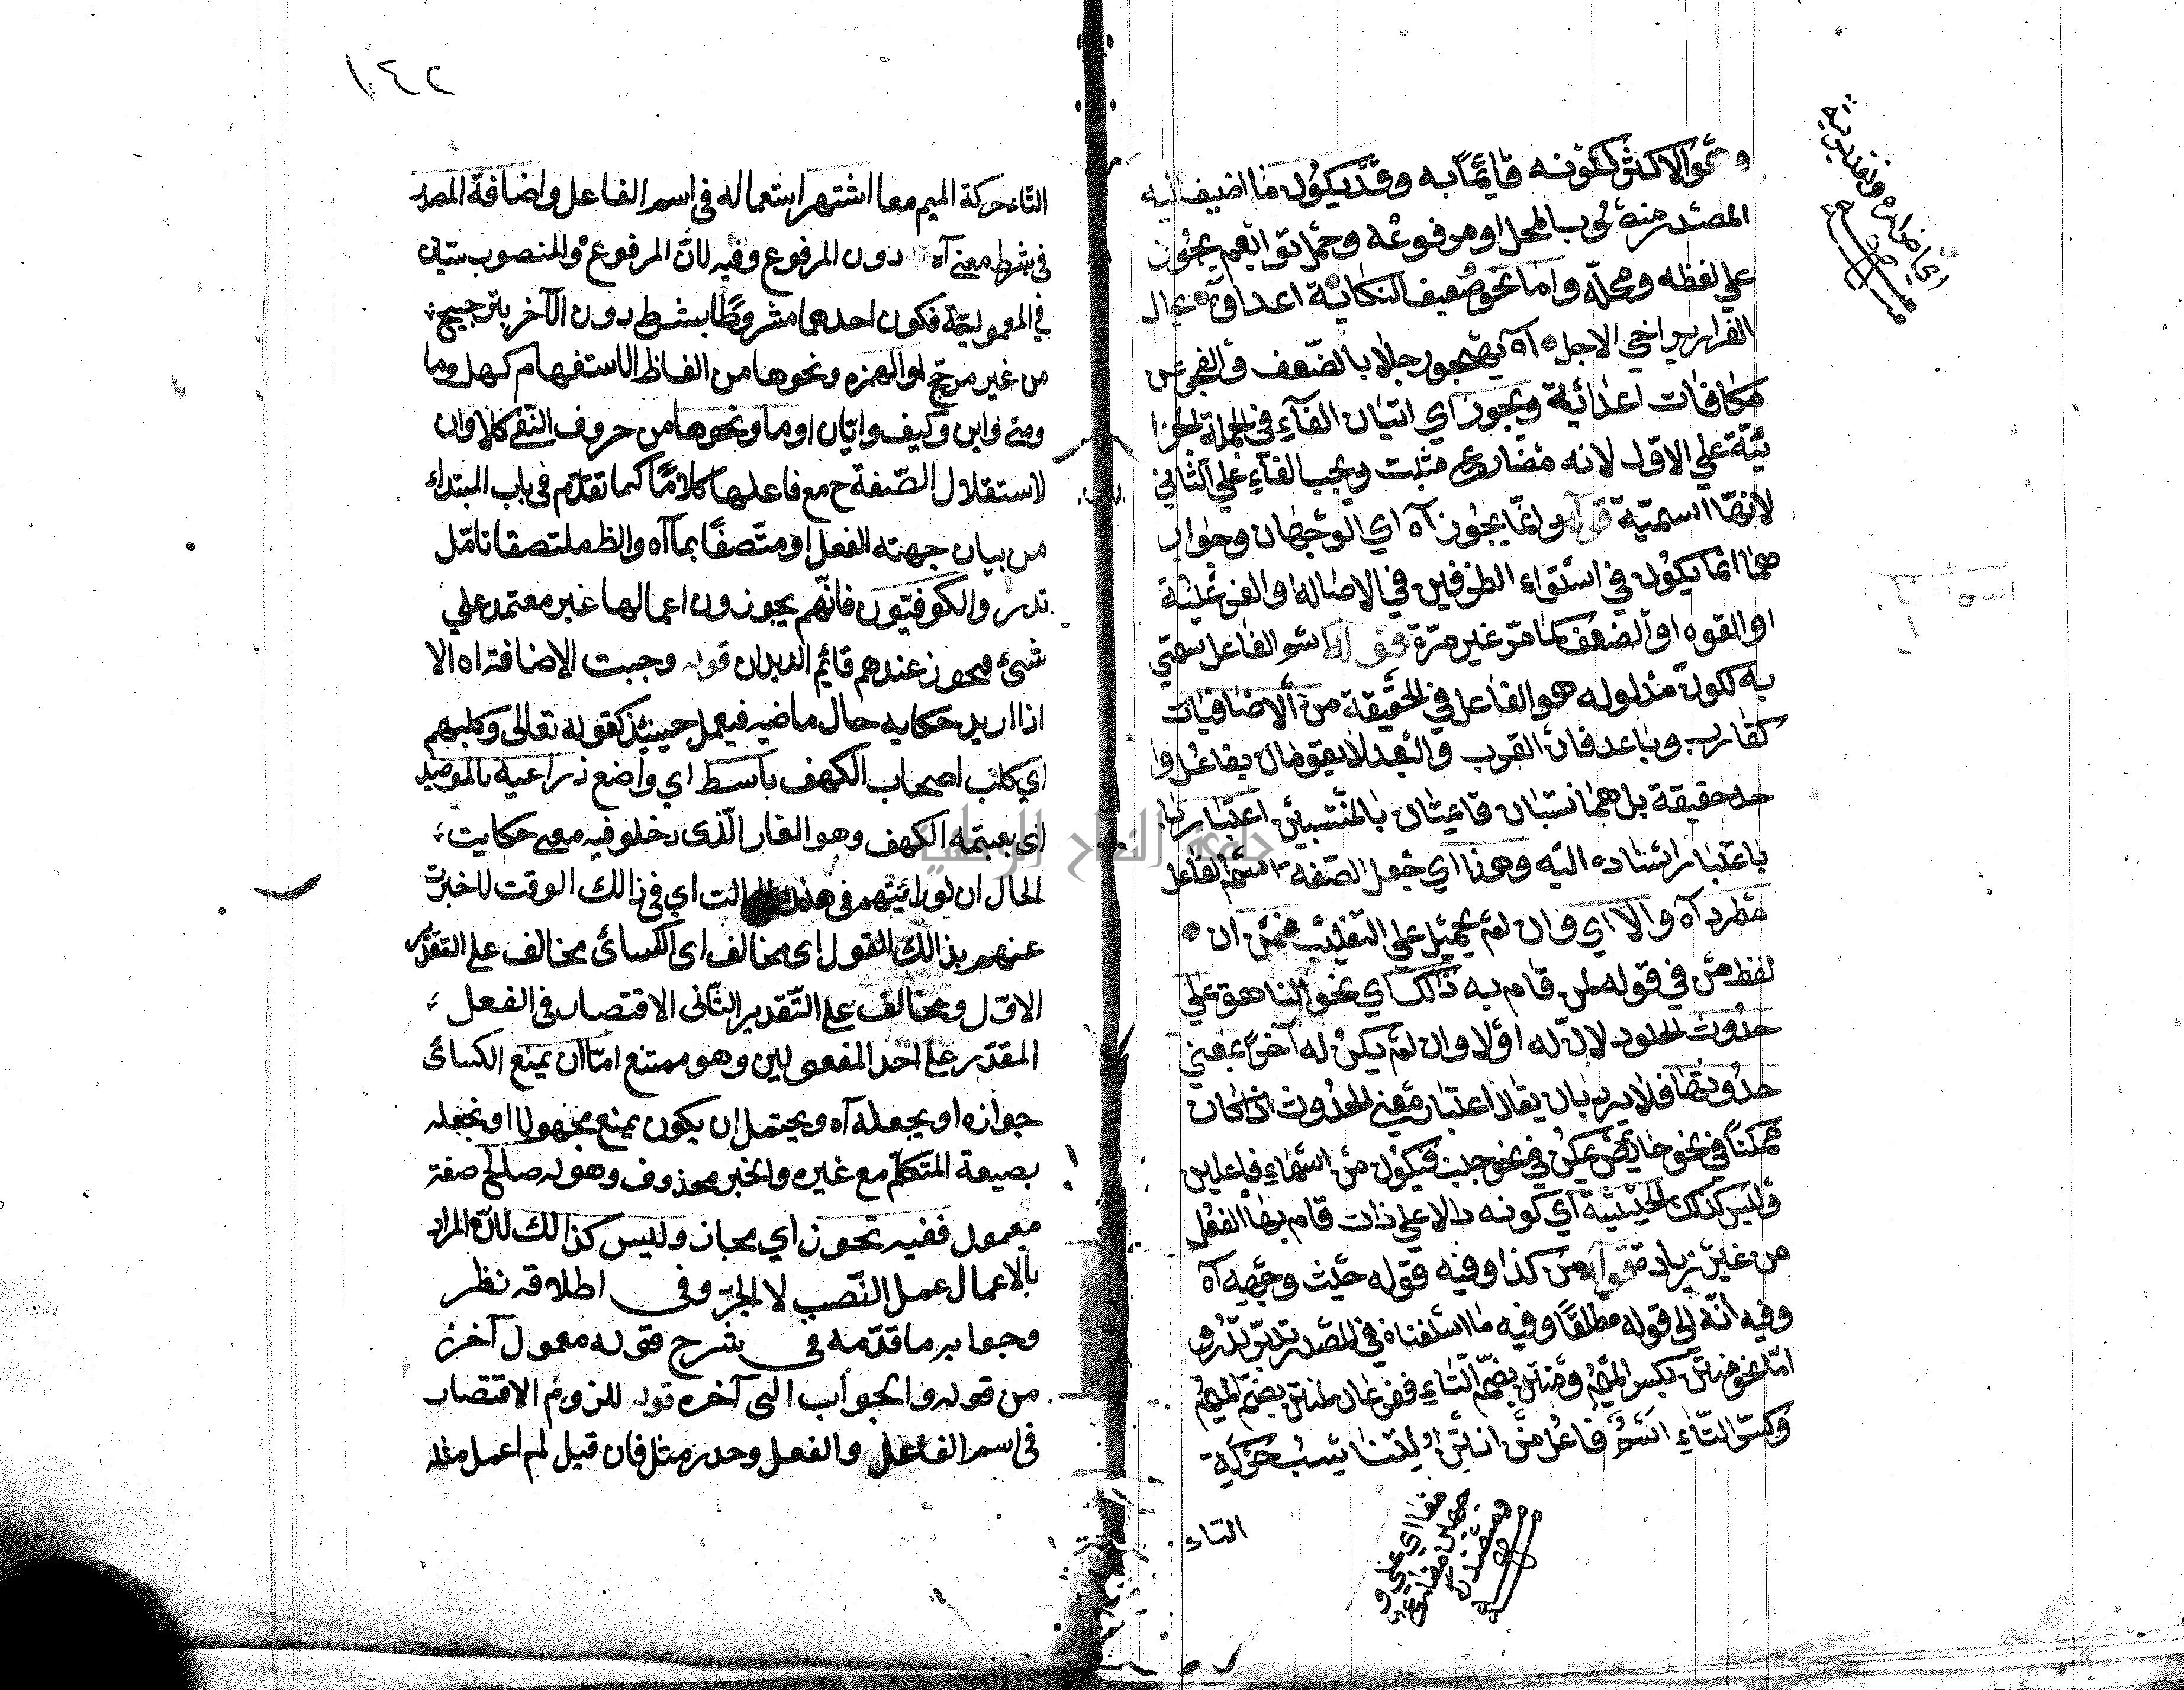 وهو الاكثر لكونه قائمًا به وقد يكون ما اضيف اليه
المصدر منصوب المحل او مرفوعه وحمل توابعهم يجوز
على لفظه ومحله واما نحو ضعيف النكاية اعداؤه يخال
الفرار يراخي الاجل آه يهجو رجلا بالضعف والعجز عن
مكافات اعدائية ويجوز اي اتيان الفآء في الجملة الجزا
ئيّة على الاوّل لانه مضارع مثبت ويجب الفآء على الثاني
لانها اسميّة قوله وانما يجوز آه اي الوجهان وجواز
هما انما يكون في استواء الطرفين في الاصالة والفرعلية
او القوه او الضعف كما مر غير مرة قوله اسم الفاعل سمي
به لكون مدلوله هو الفاعل في الحقيقة من الاضافيات
كقارب وباعد فان القرب والبعد لا يقومان بفاعل وا
حد حقيقة بل هما نسبتان قائمتان بالمنتسبين اعتبارنا
باعتبار اسناده اليه وهذا اي جعل الصفة اسم الفاعل
مطرد آه والا اي وان لم يحمل على التغليب فمن ان
لفظ من في قوله لمن قام به ذالك اي نحو الناهق على
حدوث الخلود لا لاله اوّلا وان لم يكن له آخرًا بمعني
حدوثها فلا يرد بان يقال اعتبار معنى الحدوث اذا كان
ممكنا في نحو حايض يمكن في نحو جنب فيكون من اسماء فاعلين
وليس كذلك الحيثيّة اي كونه دالا على ذات قام بها الفعل
من غير زيادة قوله من كذا وفيه قوله حيث وجهه آه
وفيه انّه لي قوله مطلقًا وفيه ما اسلفناه في المصدر تدبّر تدر و
امّا نحو منتن بكسر الميم ومنتن بضمّ التاء ففرعان لمنتن بضمّ الميم
وكسر التّاء اسم فاعل من انتن ليتناسب حركة
التاء
١٤٢
التّاء حركة الميم معا اشتهر استعماله في اسم الفاعل واضافة المصدر
في شرط معنى آه دون المرفوع وفيه لانّ المرفوع والمنصوب سيّان
في المعموليّة فكون احدهما مشروطًا بشرط دون الآخر بترجيح
من غير مرجّح او الهمزه ونحوها من الفاظ الاستفهام كهل وما
ومتى واين وكيف وايّان او ما ونحوها من حروف النّفي كلا وان
لاستقلال الصّفة ح مع فاعلها كلامًا كما تقدّم في باب المبتداء
من بيان جهته الفعل او متّصفًا بما آه والظ ملتصقا تامّل
تدر والكوفيّون فانّهم يجوزون اعمالها غير معتمد على
شئ فيجوز عندهم قائم الزيدان قوله وجبت الاضافة اه الا
اذا اريد حكايه حال ماضيه فيعمل حينئذ كقوله تعالى وكلبهم
اي كلب اصحاب الكهف باسط اي واضع ذراعيه بالوصيد
اى بعتبة الكهف وهو الغار الّذى دخلو فيه معنى حكايت
الحال ان لو رائيتهم في هذه الحالت اي في ذالك الوقت لاخبرت
عنهم بذالك القول اى مخالف اى الكسائ مخالف على التقدير
الاوّل ومخالف على التّقدير الثّانى الاقتصار في الفعل
المقدّر على احد المفعولين وهو ممتنع امّا ان يمنع الكسائ
جوازه او يجعله آه ويحتمل ان يكون يمنع مجهولا او نجعله
بصيعة المتكلّم مع غيره والخبر محذوف وهو له صالح صفة
معمول ففيه تجوز اي مجاز وليس كذالك لانّ المراد
بالاعمال عمل النّصب لا الجرّ وفى اطلاقه نظر
وجوابه ما قدّمه في شرح قوله معمول آخر
من قوله والجواب الى آخره قوله للزوم الاقتصار
فى اسم الفاعل والفعل وحدر مثل فان قيل لم اعمل مثله